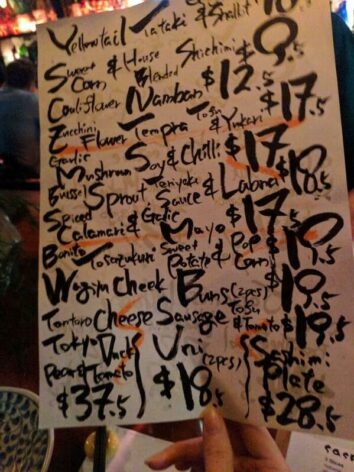 Yellowtail Tataki & Shallot
Sweet Corn & House Blended Shichimi $9.5
Cauliflower Nanban $12.5
Zucchini Flower Tempra Tosa & Yukari $17.5
Garlic Mushrum Soy & Chilli $17
Brussel Sprout Teriyaki Sauce & Labna $18.5
Spiced Calamari & Garlic Mayo $17.5
Bonito Tosazukuri Sweet Potato & Pop Corn $19.5
Wagyu Cheek Buns (2pcs) $19.5
Tontoro Cheese Sausage Tobu & Tomato $19.5
Tokyo Duck
Pear & Tomato
$37.5
Uni (2pcs)
$18.5
Sashimi
Plate
$28.5